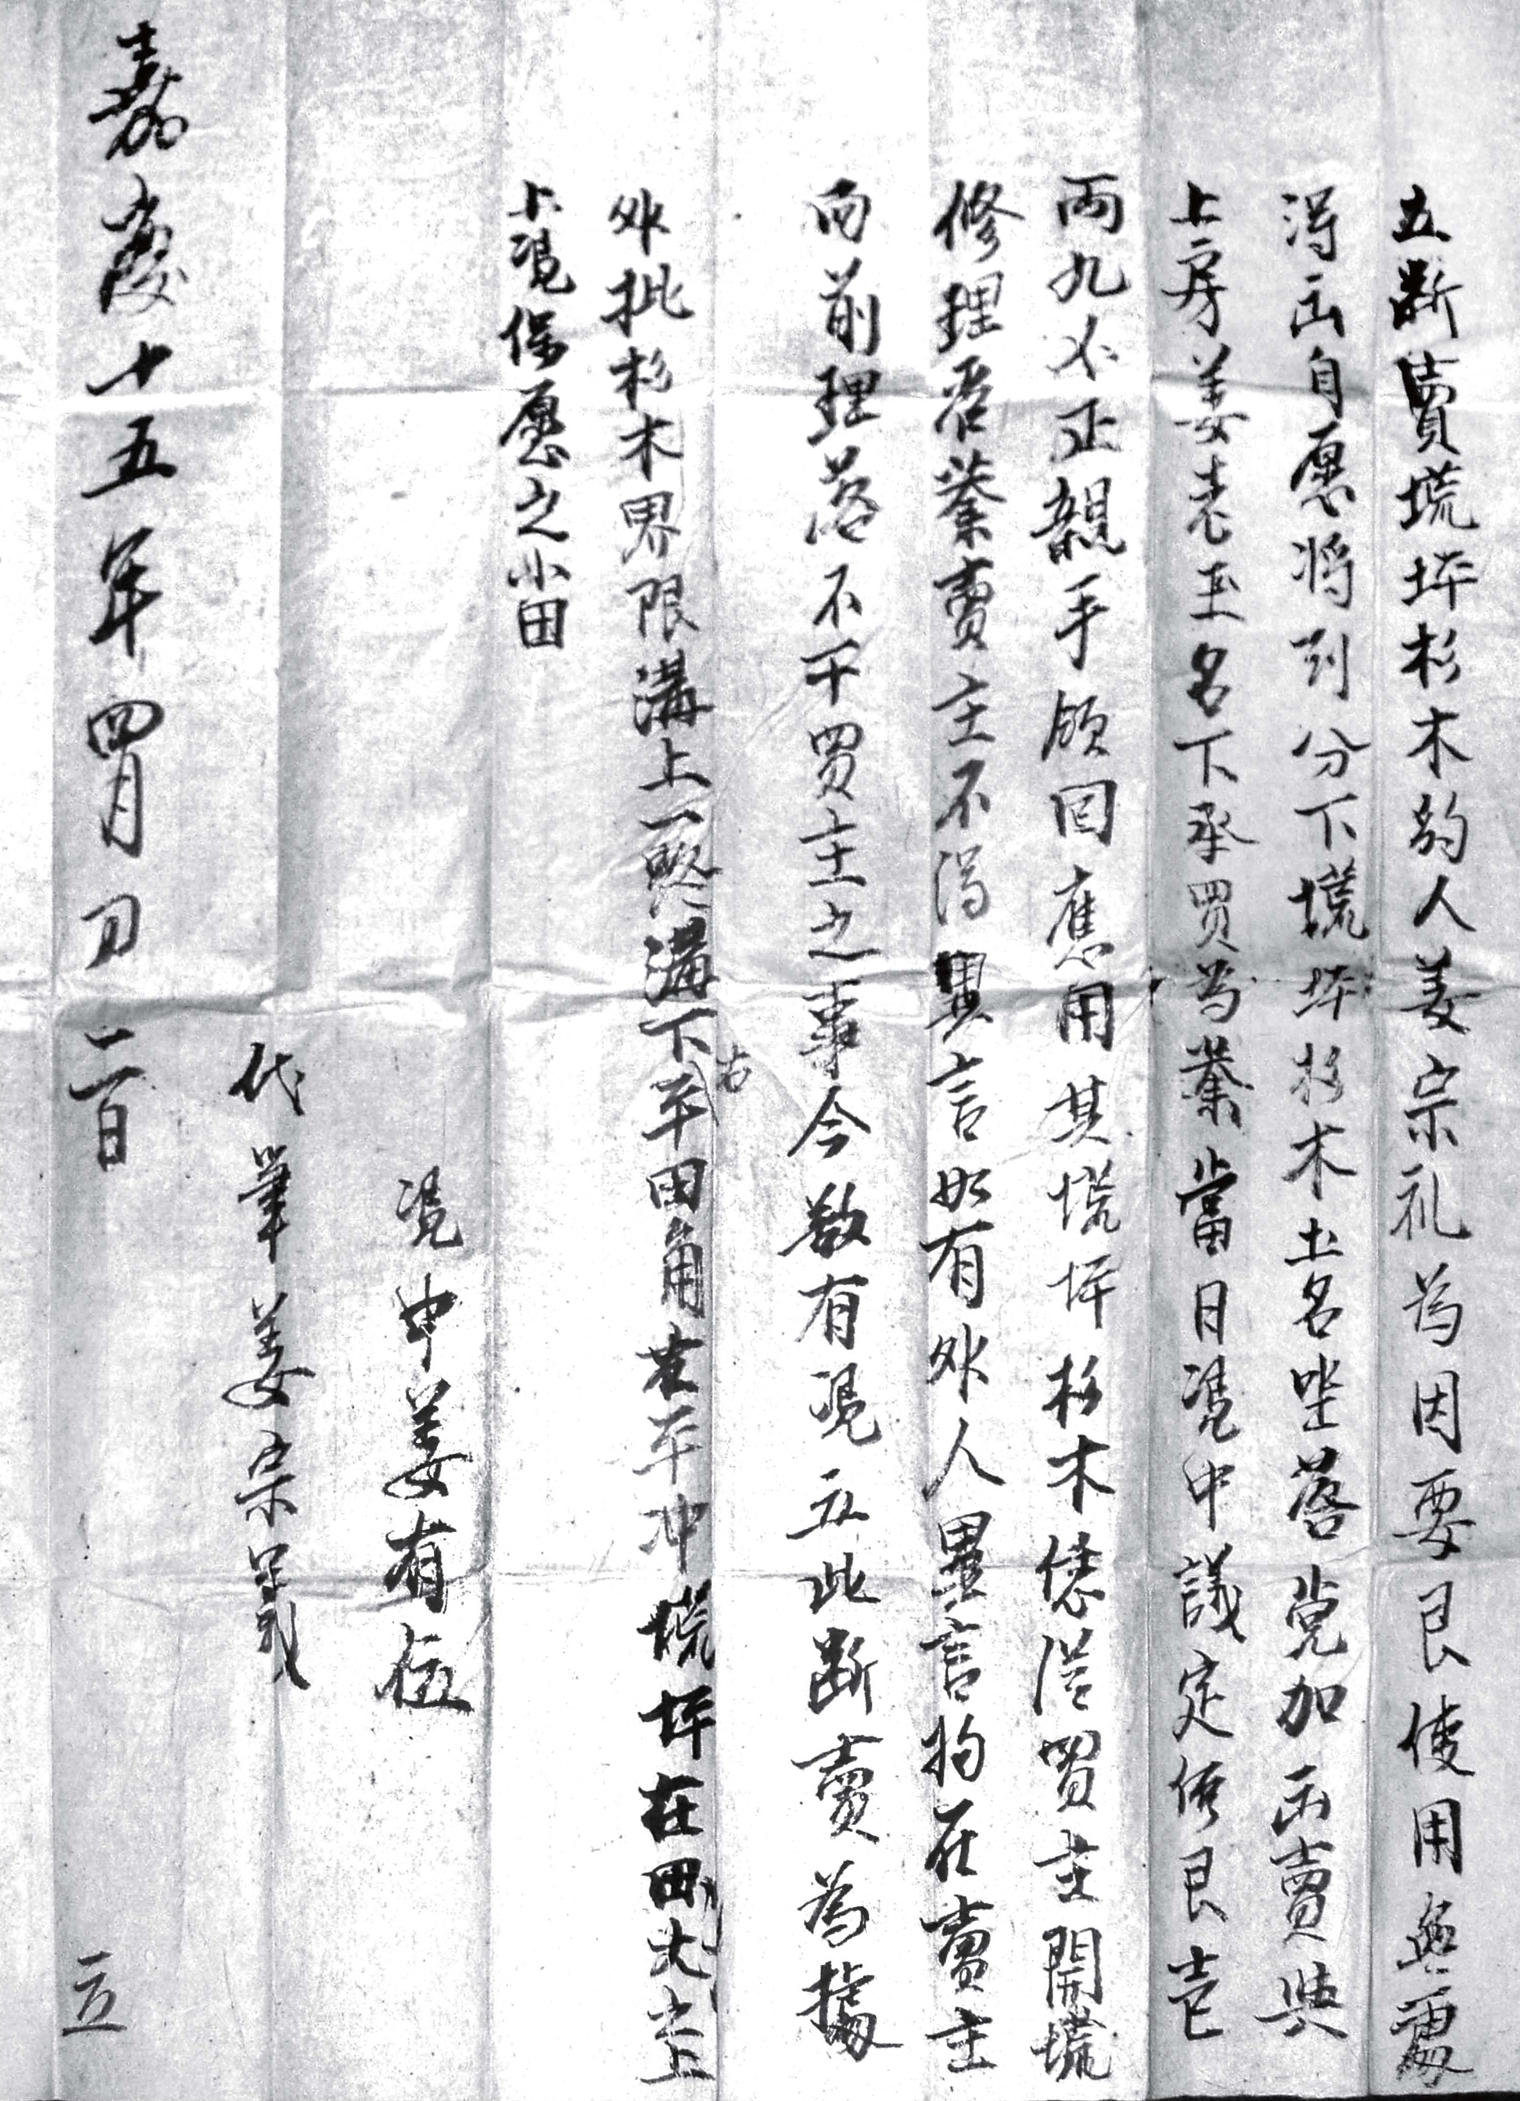 立断賣塃坪杉木約人姜宗礼為因要艮使用無處
淂出自愿將到分下塃坪杉木土名坐落党加出賣與
上房姜老玉名下承買為業當日凴中議定價艮壱
両九卜正親手領回應用其塃坪杉木恁從買主開塃
修理管業賣主不淂異言如有外人異言拘在賣主
向前理落不干買主之事今欲有凴立此断賣為據
外批杉木界限溝上一
溝下平田角
右
平冲塃坪在田坎上
上凴保愿之小田
凴中姜有伍
代筆姜宗義
嘉慶十五年四月初二日立